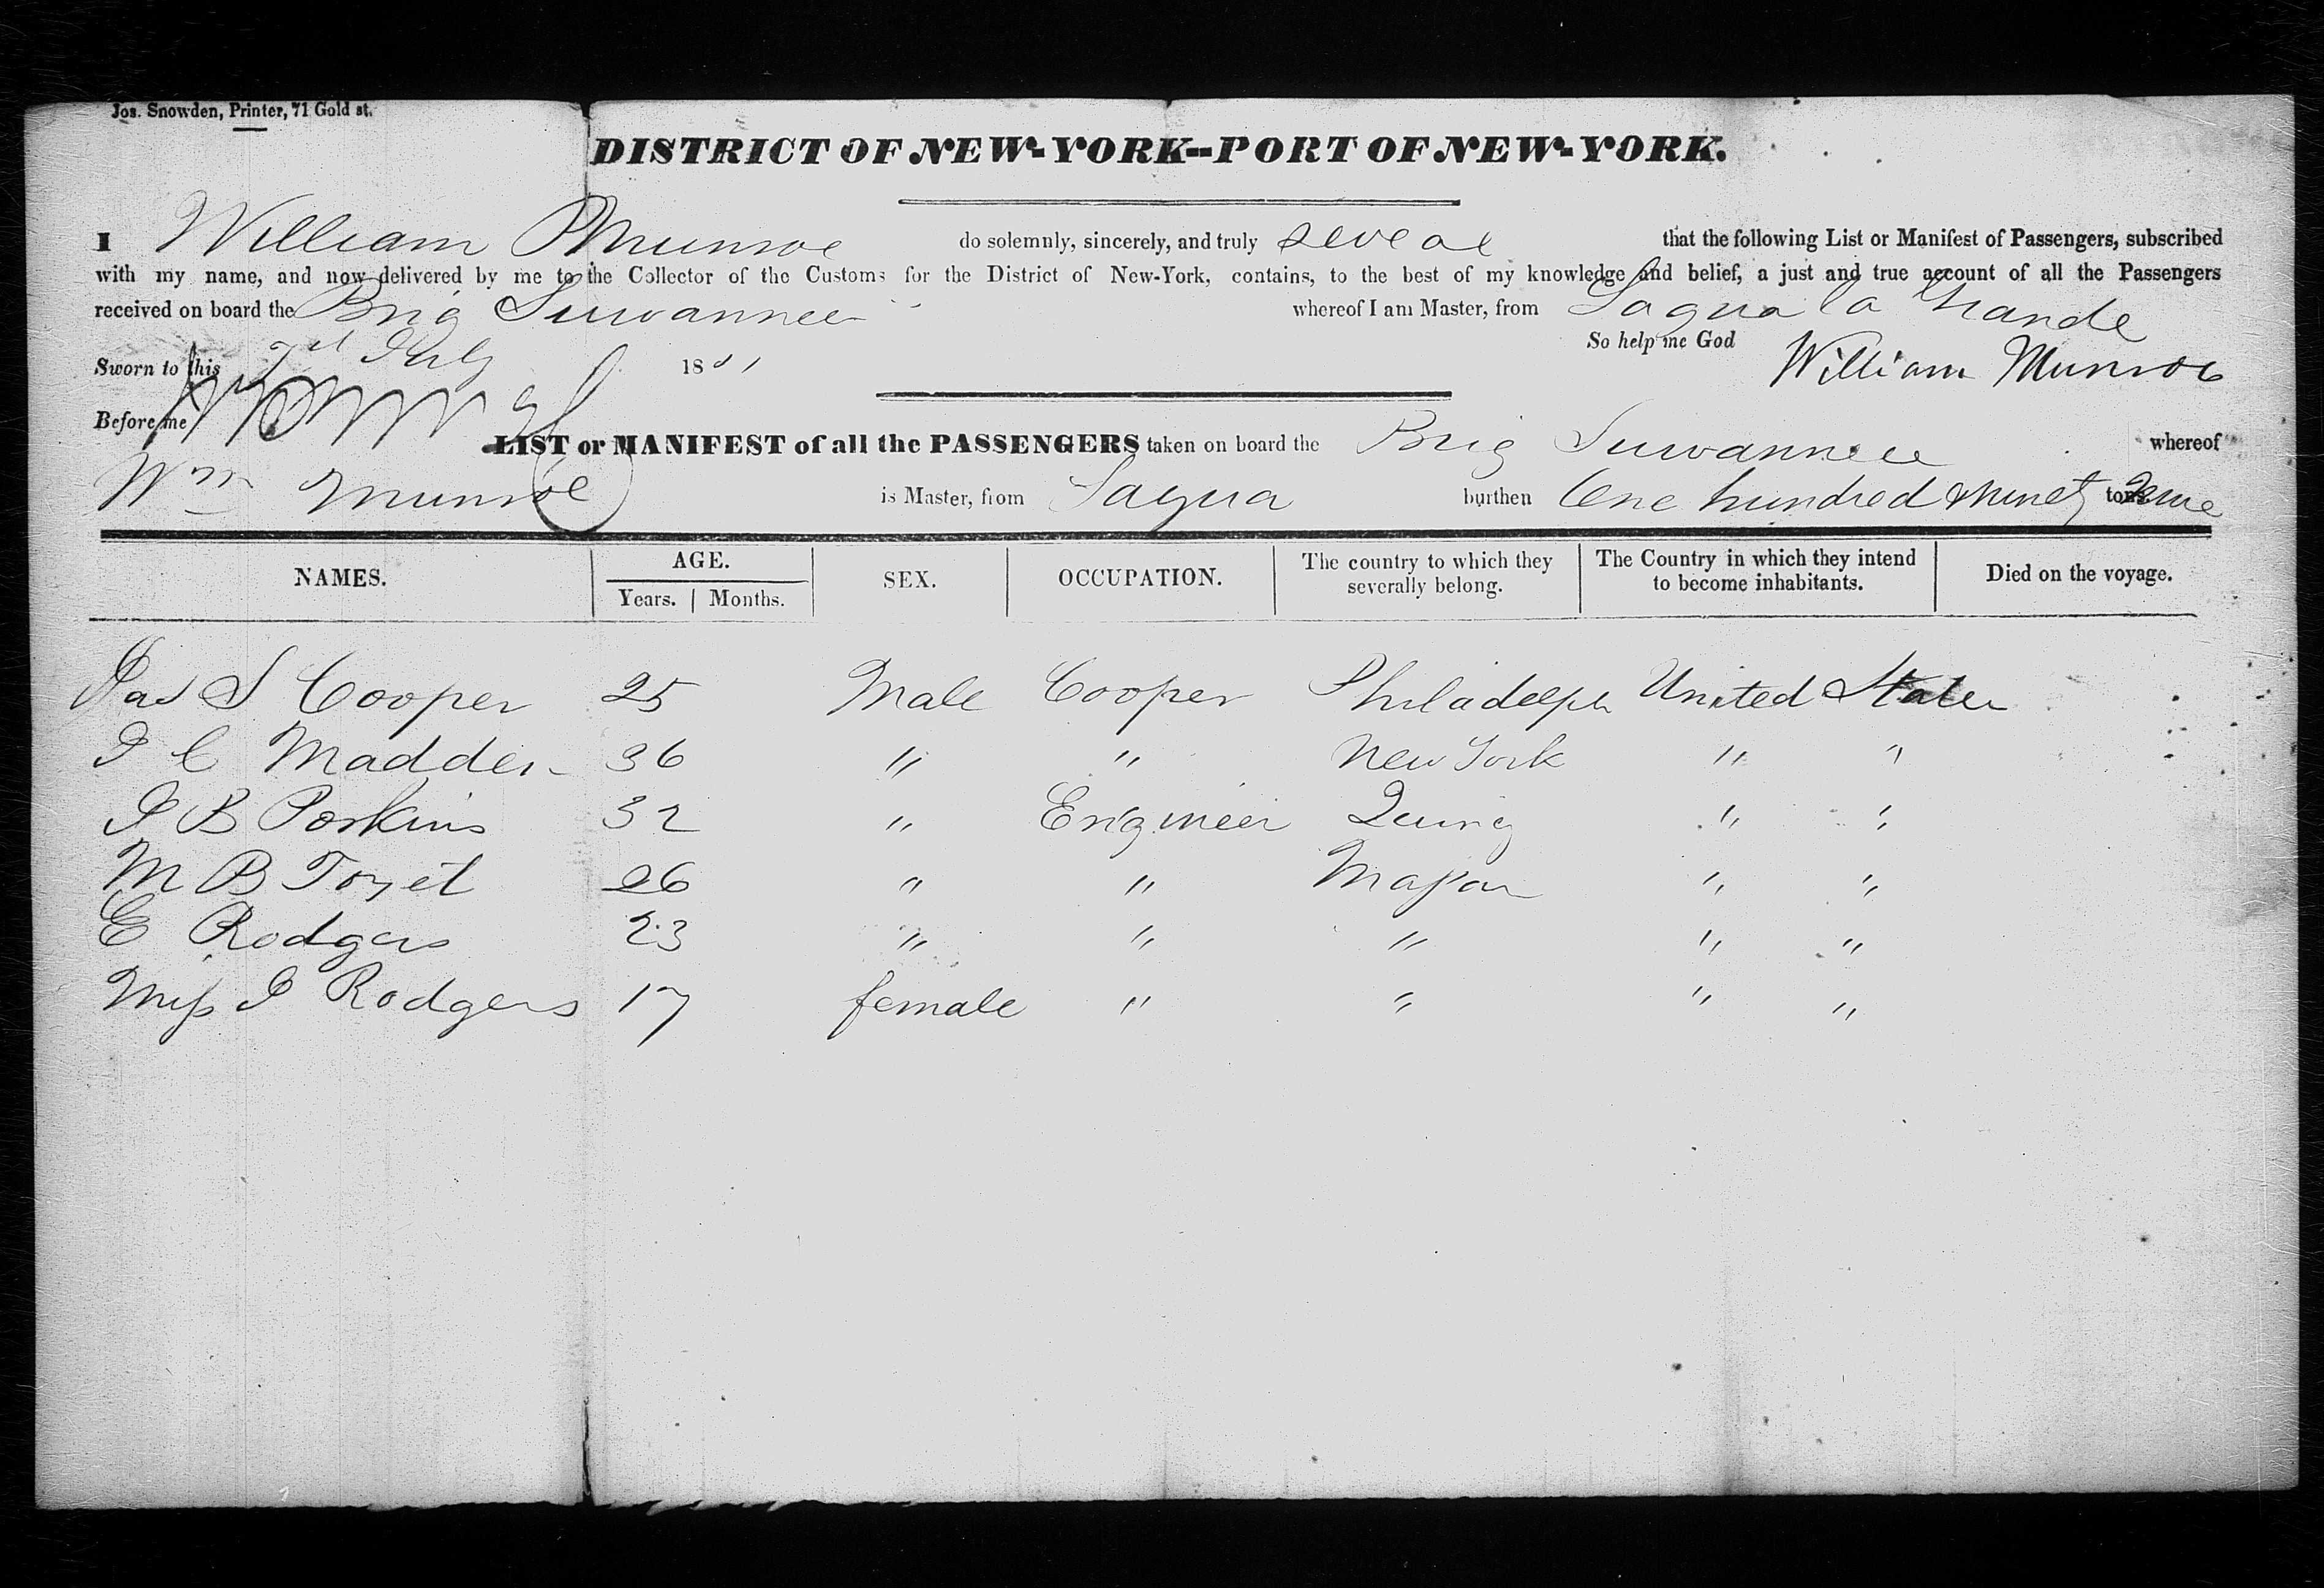 Jos. Snowden, Printer, 71 Gold st.
DISTRICT OF NEW-YORK--PORT OF NEW-YORK.
I William Munroe do solemnly, sincerely, and truly that the following List or Manifest of Passengers, subscribed
with my name, and now delivered by me to the Collector of the Customs for the District of New-York, contains, to the best of my knowledge and belief, a just and true account of all the Passengers
received on board the Brig Suwannee whereof I am Master, from Sagua la Grande
So help me God
Sworn to this July 18 William Munroe
Before me
LIST or MANIFEST of all the PASSENGERS taken on board the Brig Suwannee whereof
Wm Munroe is Master, from Sagua burthen One hundred & ninety nine tons.
NAMES. AGE. SEX. OCCUPATION. The country to which they severally belong. The Country in which they intend to become inhabitants. Died on the voyage.
Years. Months.
Jas S Cooper 25 Male Cooper Philadelph United States
J C Madden 36 " " New York " "
J B Porkins 32 " Engineer " "
M B 26 " " " "
E Rodgers 23 " " " " "
Miss J Rodgers 17 female " " " "